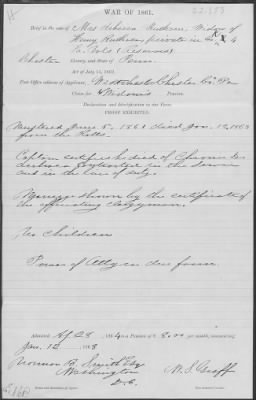 WAR OF 1861.
Brief in the case of Mrs Rebecca Ruthven, Widow of
Henry Ruthven, private in Co K 4
Pa. Vols (Reserves)
Chester County, and State of Penn
Act of July 14, 1862.
Post Office address of Applicant, West Chester Chester Co. Pa
Claim for Widow's Pension.
Declaration and Identification in due Form.
PROOF EXHIBITED.
Mustered June 5, 1861 died Jan. 12, 1863
from the Rolls.
Captain certifies he died of Chronic
in the service
and in the line of duty.
Marriage shown by the certificate
of the officiating Clergyman.
No Children
Power of Atty in due form.
Admitted Ap 28, 1864 to a Pension of $ 8.00 per month, commencing
Jan. 12 1863
Norman B. Smith Esq
Washington
D.C.